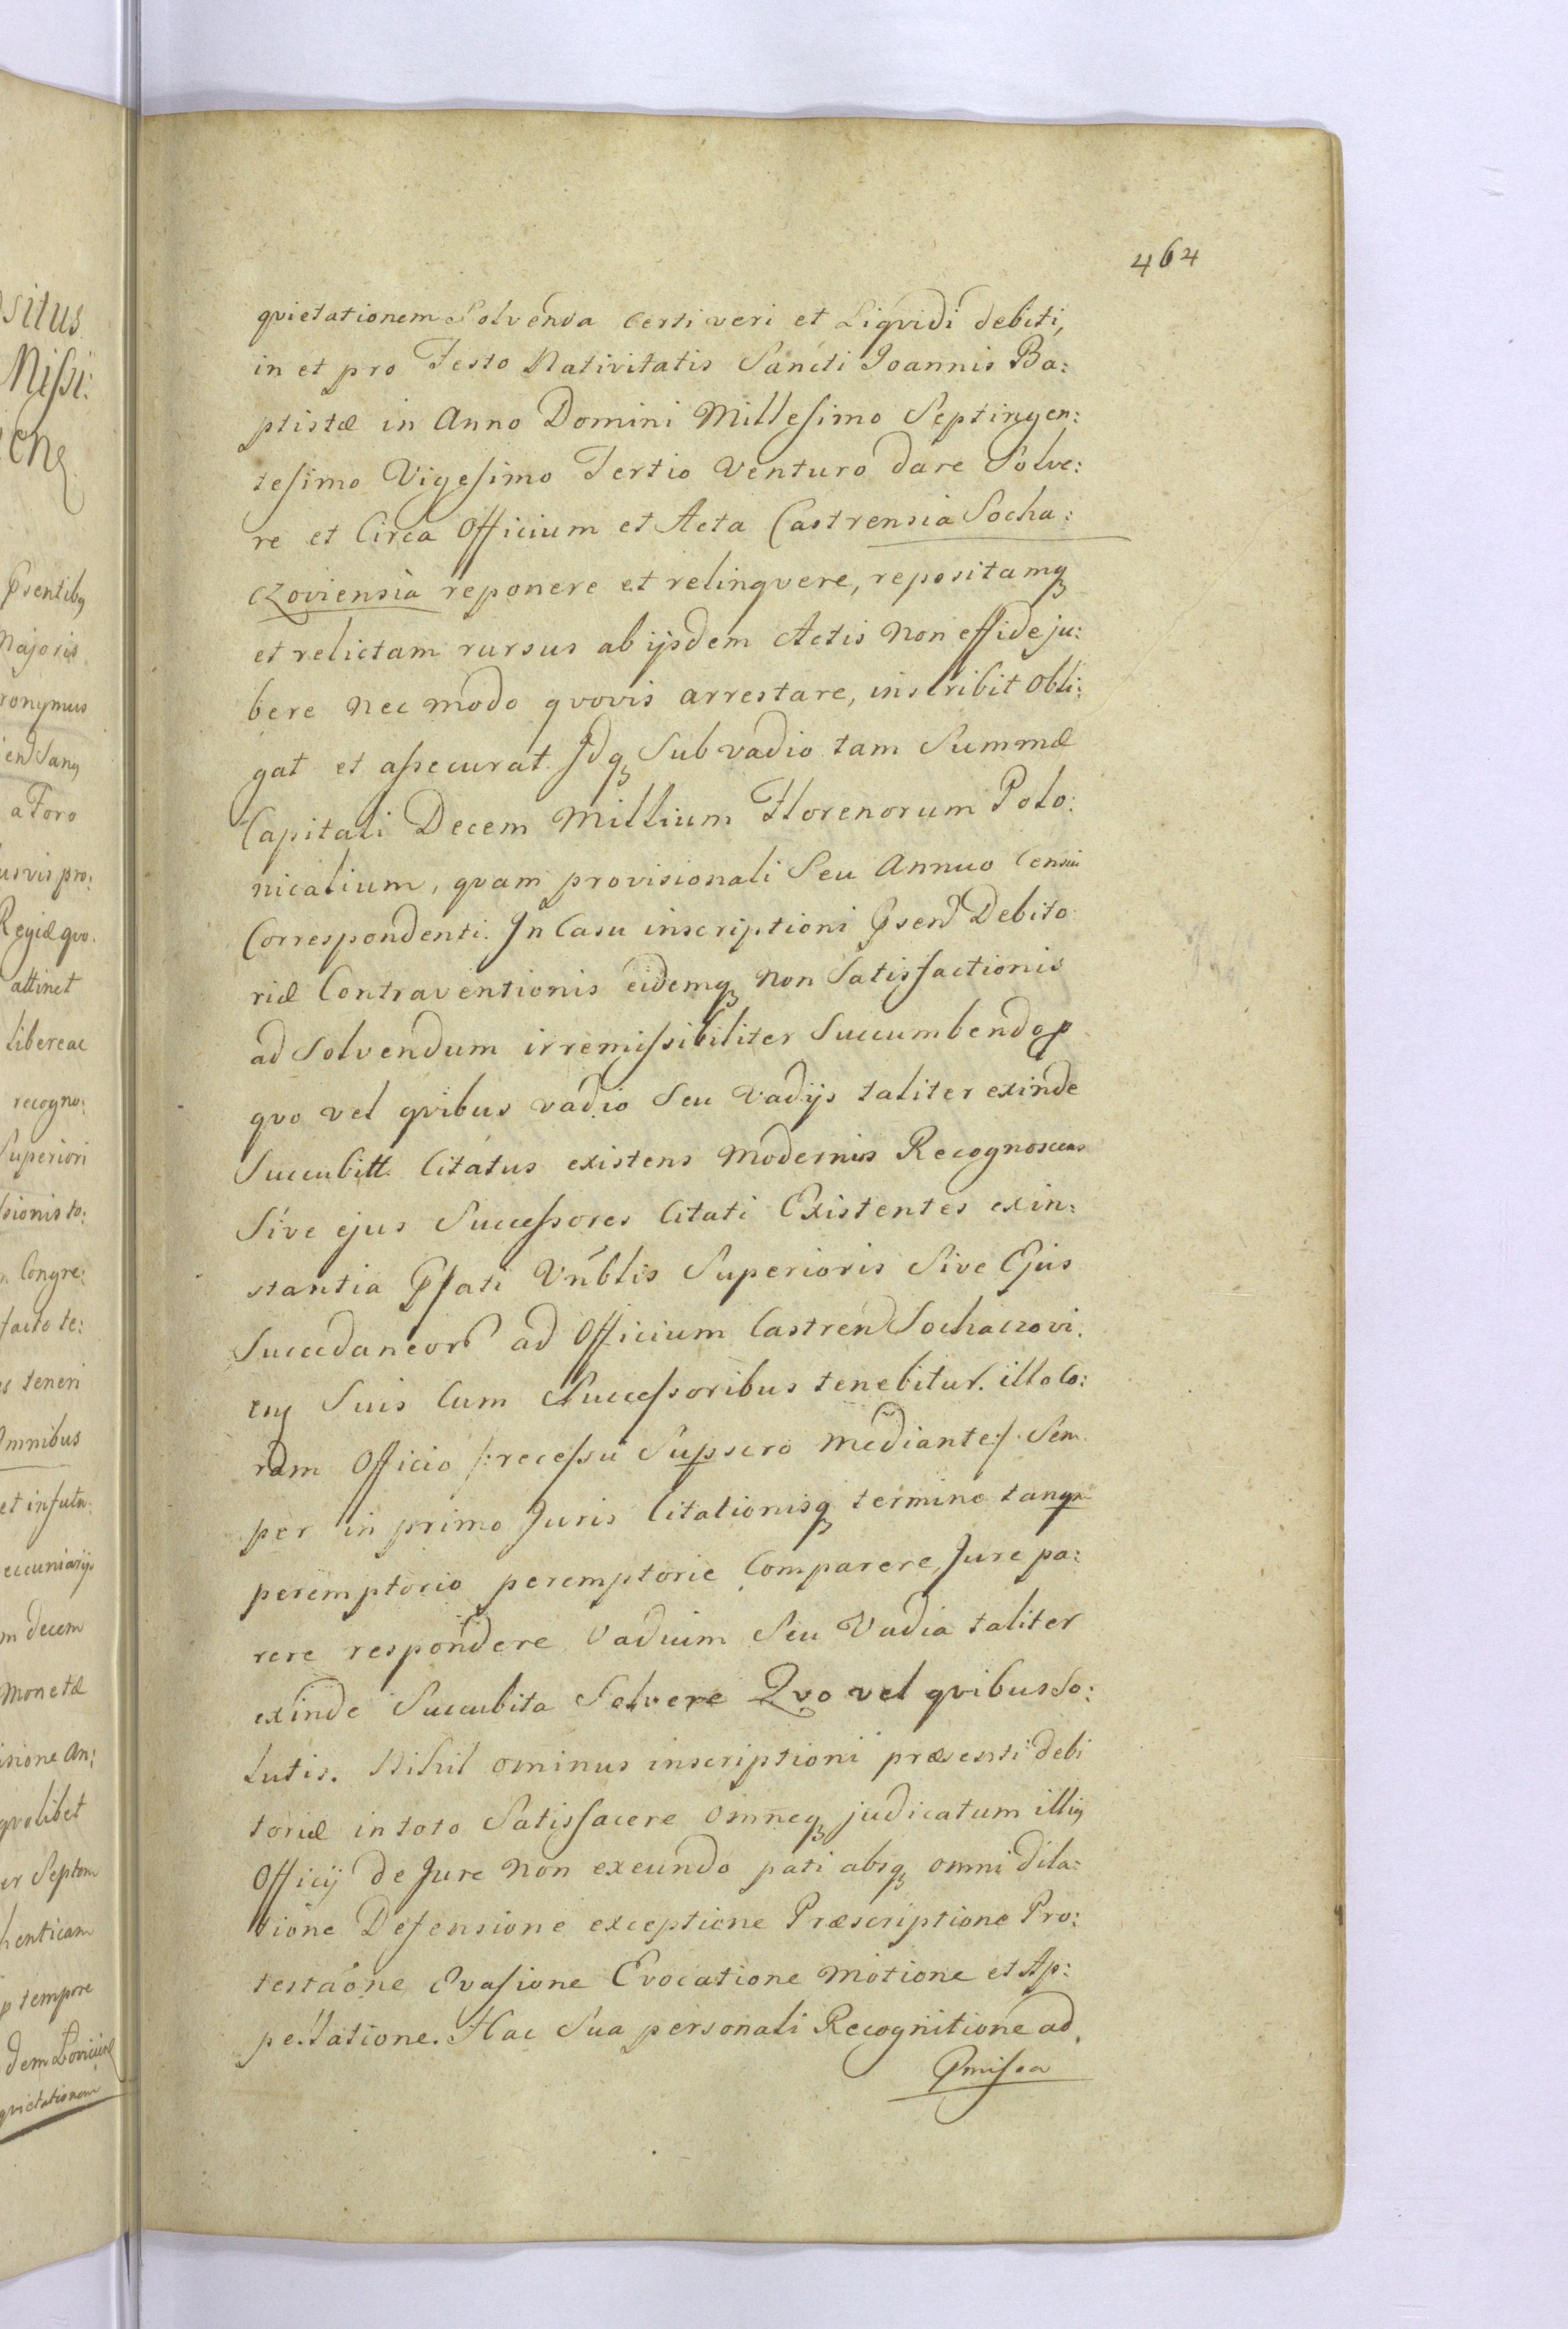 464
qvietationem Solvenda Certi veri et Liqvidi debiti,
in et pro Festo Nativitatis Sancti Joannis Ba:
ptistæ in Anno Domini Millesimo Septingen:
tesimo Vigesimo Tertio Venturo dare Solve:
re et Circa Officium et Acta Castrensia Socha:
czoviensia reponere et relinqvere, repositamq
et relictam rursus ab ijsdem Actis non effideju:
bere nec modo qvovis arrestare, inscribit obli:
gat et assecurat. Idq Sub vadio tam Summæ
Capitali Decem Millium Florenorum Polo:
nicalium, qvam provisionali Seu Annuo Censui
Correspondenti. In Casu inscriptioni Psend Debito
riæ Contraventionis eidemq non Satisfactionis
ad Solvendum irremissibiliter Succumbendo p
qvo vel qvibus vadio Seu Vadijs taliter exinde
Succubitt. Citatus existens Modernus Recognoscens
Sive ejus Successores Citati Existentes ex in:
stantia Pfati Vnblis Superioris Sive Ejus
Succedaneor ad Officium Castren Sochaczovi.
Suis Cum Successoribus tenebitur. illo Co:
ram Officio /:recessu Supscro mediante:/ Sem
per in primo Juris Citationisq termino tanqm
peremptorio peremptorie Comparere, Jure pa:
rere respondere Vadium Seu Vadia taliter
exinde Succubita Solvere Qvo vel qvibus So:
lutis. Nihil ominus inscriptioni præsenti debi
toriæ in toto Satisfacere omneq judicatum illig
Officij de Jure non exeundo pati absq omni dila:
tione Defensione exceptione Præscriptione Pro:
testaone Evasione Evocatione Motione et Ap:
pellatione. Hac Sua personali Recognitione ad
Pmissa